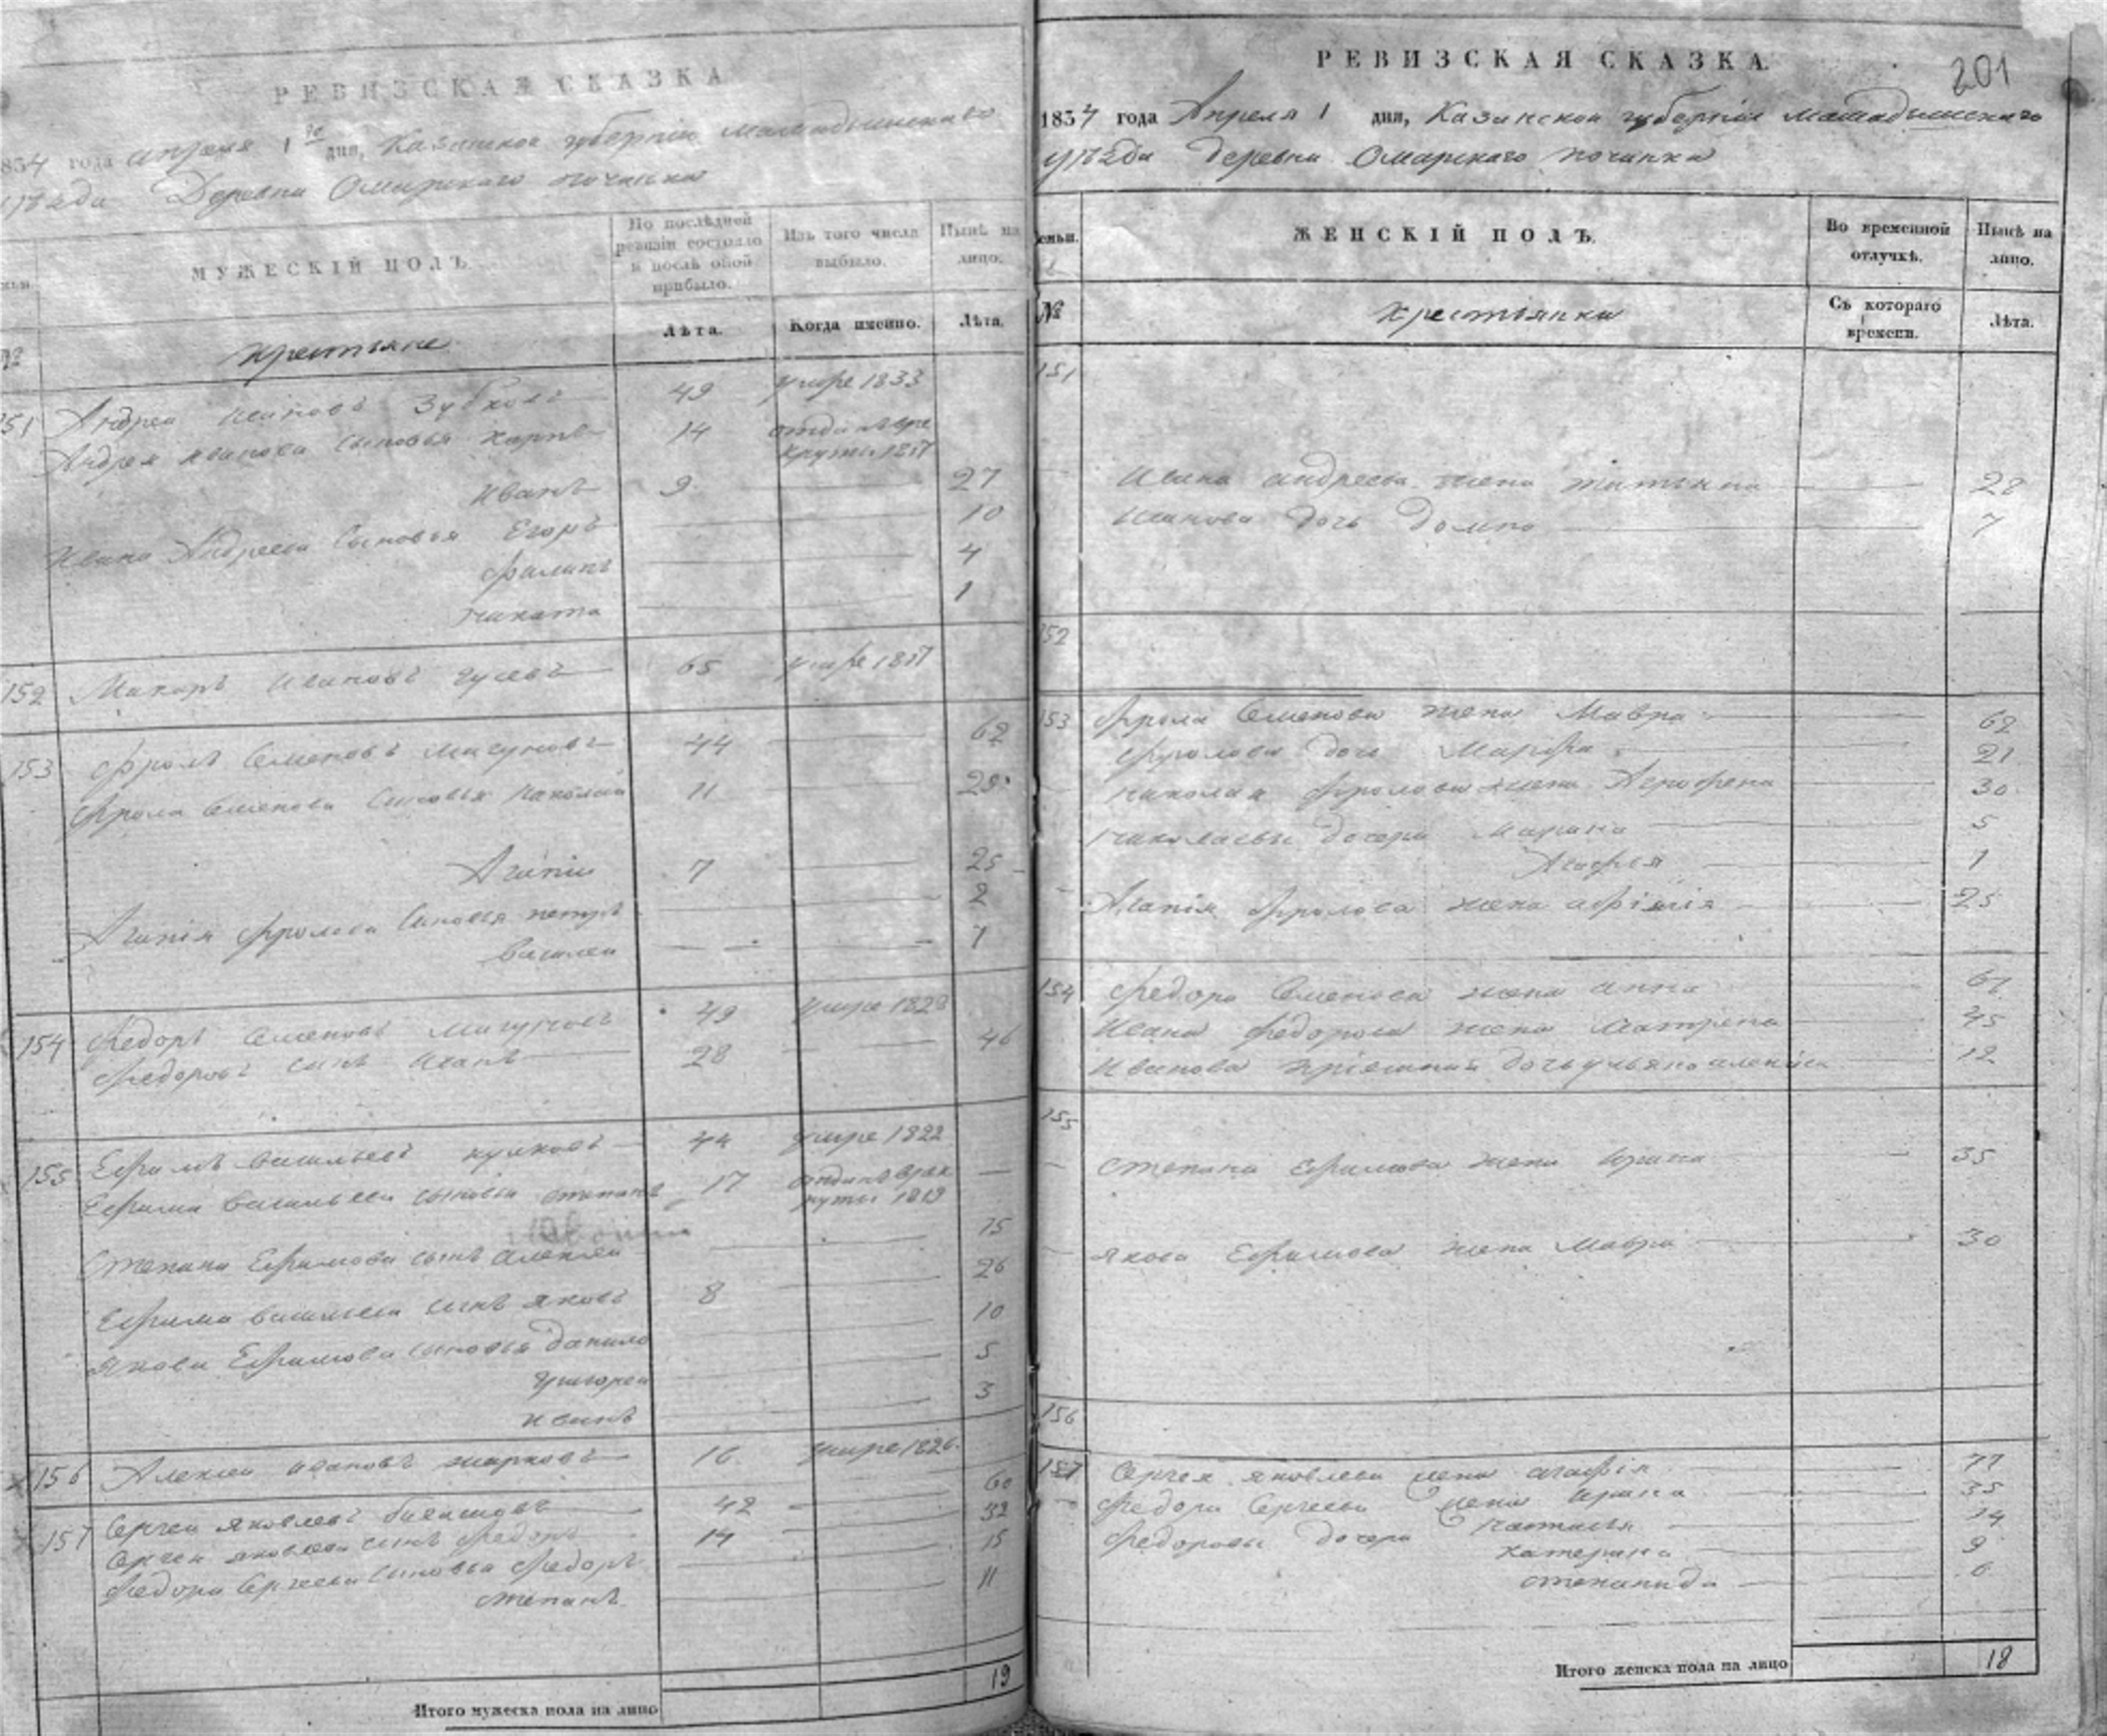 РЕВИЗСКАЯ СКАЗКА
1834 года апреля 1го дня, Казанской губернии мамадышскаго
уѣзда Деревни Омарскаго починка
МУЖЕСКІЙ ПОЛЪ.
По послѣдней ревизіи состояло и послѣ оной прибыло.
Изъ того числа выбыло.
Нынѣ на лицо.
№
крестьяне
Лѣта.
Когда именно.
Лѣта.
151 Андреи Ивановъ Зубковъ 49 умре 1833
Андрея Иванова сыновья Карпъ 14 отданъ в ре
круты 1817
Иванъ 9 27
Ивана Андреева сыновья Егоръ 10
Филипъ 4
Никита 1
152 Макаръ Ивановъ Гусевъ 65 умре 1817
153 Фролъ Семеновъ Мигуновъ 44 62
Фрола Семенова сыновья Николай 11 29
Агапіи 7 25
Агапія Фролова сыновья петръ 2
Василеи 1
154 Федоръ Семеновъ Мигуновъ 49 умре 1828
Федоровъ сынъ Иванъ 28 46
155 Ефимъ Васильевъ куликовъ 44 умре 1822
Ефима Васильева сыновья степанъ 17 отданъ врек
руты 1819
Степана Ефимова сынъ алексеи 15
Ефима васильева сынъ яковъ 8 26
Якова Ефимова сыновья данило 10
Григореи 5
иванъ 3
156 Алексеи ивановъ жарковъ 16 умре 1826.
157 Сергеи яковлевъ 42 60
Сергея яковлева сынъ федоръ 14 32
Федора Сергеева сыновья Федоръ 15
степанъ 11
Итого мужеска пола на лицо 19
201
РЕВИЗСКАЯ СКАЗКА.
1834 года Апреля 1 дня, Казанской губерніи мамадышскаго
уѣзда деревни Омарскаго починка
Семьи.
ЖЕНСКІЙ ПОЛЪ.
Во временной отлучкѣ.
Нынѣ на лицо.
№
крестьянки
Съ котораго времени.
Лѣта.
151
Ивана андреева жена татьяна 28
Иванова дочь домна 7
152
153 Фрола Семенова жена Мавра 62
Фролова дочь Марфа 21
николая фролова жена Агрофена 30
николаевы дочери Марина 5
Агафья 1
Агапія Фролова жена 25
154 Федора Семенова жена анна 67
Ивана федорова жена матрена 45
Иванова пріемная дочь ульяна 12
155
степана Ефимова жена Ирина 35
якова Ефимова жена мавра 30
156
157 Сергея яковлева жена агафія
Федора Сергеева жена Ирина 35
Федоровы дочери настасья 14
катерина 9
степанида 6
Итого женска пола на лицо 18